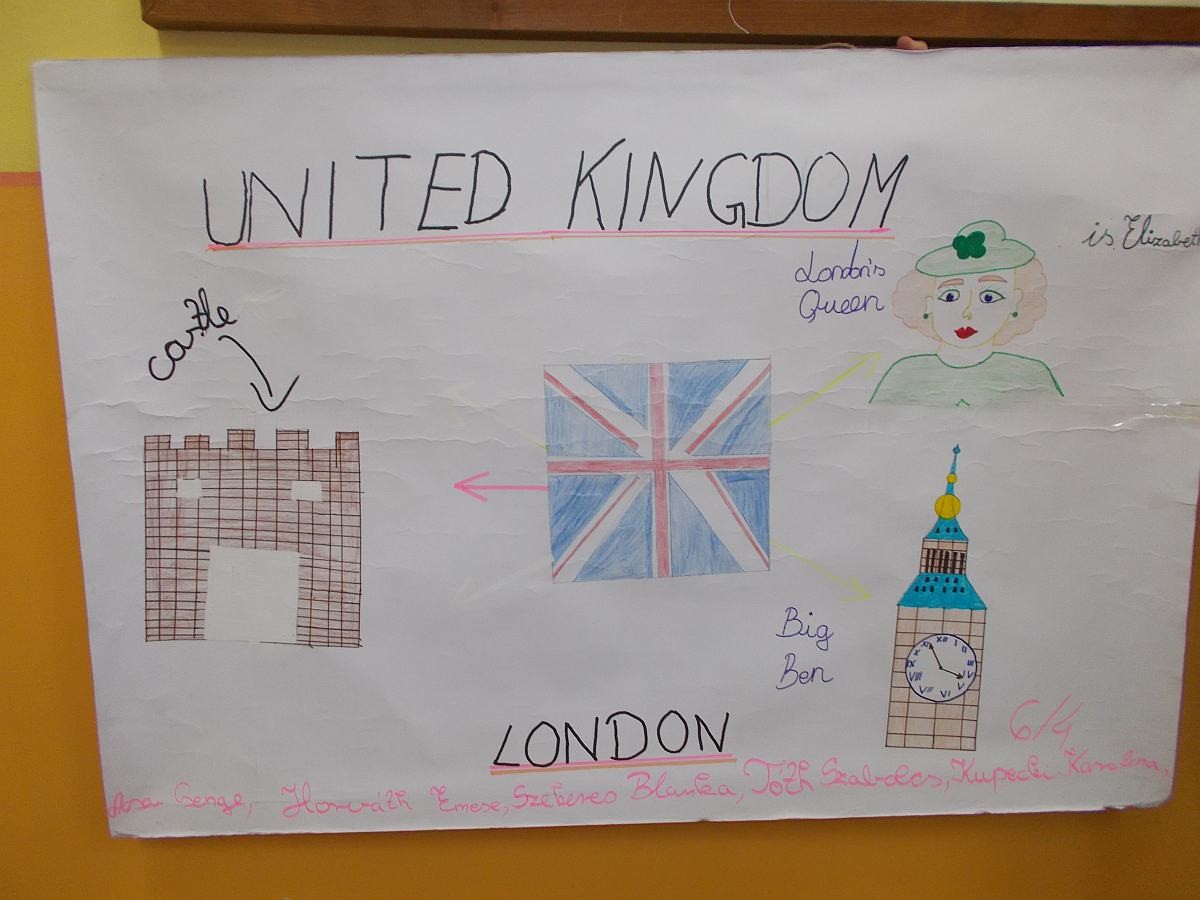 UNITED KINGDOM
is Elizabeth
London's
Queen
castle
XII
Big
Ben
LONDON
6/4
Horváth Emese, Szekeres Blanka, Tóth Szabolcs, Kupecki Karolina,